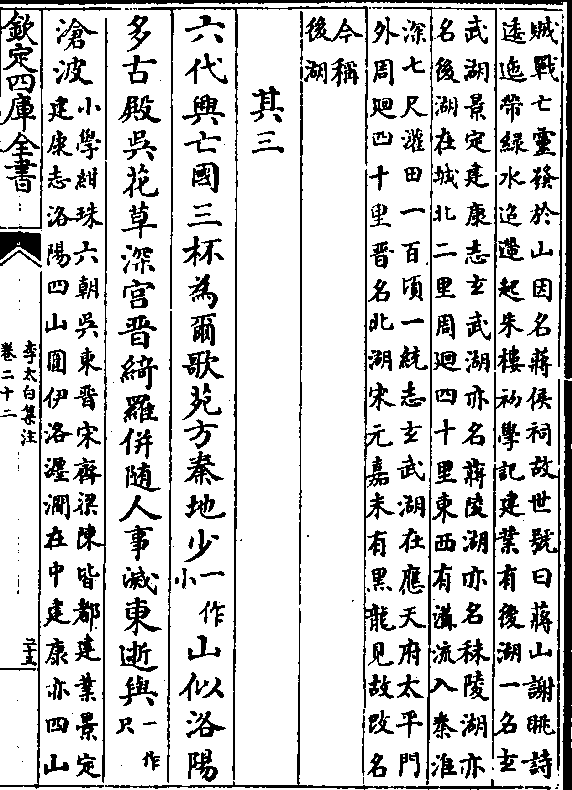 賊戰亡靈發於山因名蔣侯祠故世號曰蔣山謝眺詩
逶迤帶緑水迢遞起朱樓初學記建業有後湖一名𤣥
武湖景定建康志𤣥武湖亦名蔣陵湖亦名秣陵湖亦
名後湖在城北二里周廻四十里東西有溝流入秦淮
深七尺灌田一百頃一統志𤣥武湖在應天府太平門
外周廻四十里晉名北湖宋元嘉末有黑龍見故改名
今稱
後湖
其三
六代興亡國三杯為爾歌苑方秦地少一作小山似洛陽
多古殿吳花草深宫晉綺羅併随人事滅東逝與一作只
滄波
小學紺珠六朝吳東晉宋齊梁陳皆都建業景定
建康志洛陽四山圍伊洛瀍澗在中建康亦四山
欽定四庫全書
李太白集注
卷二十二
二十五